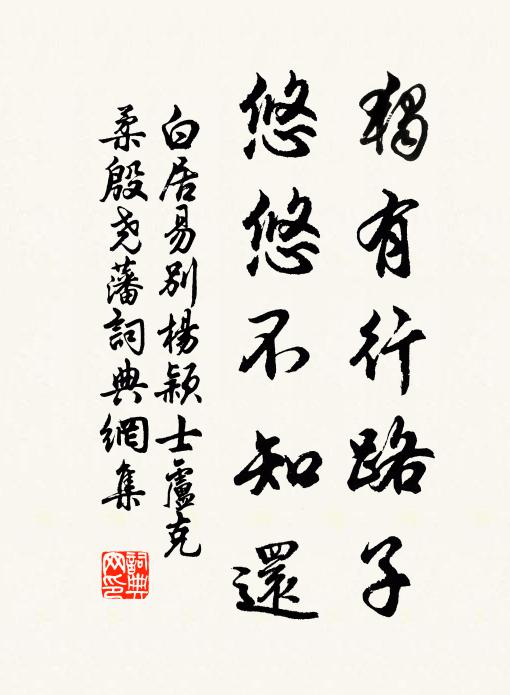 獨有行路子
悠悠不知還
白居易別楊穎士盧克
柔殷堯藩詞典網集
詞典網印